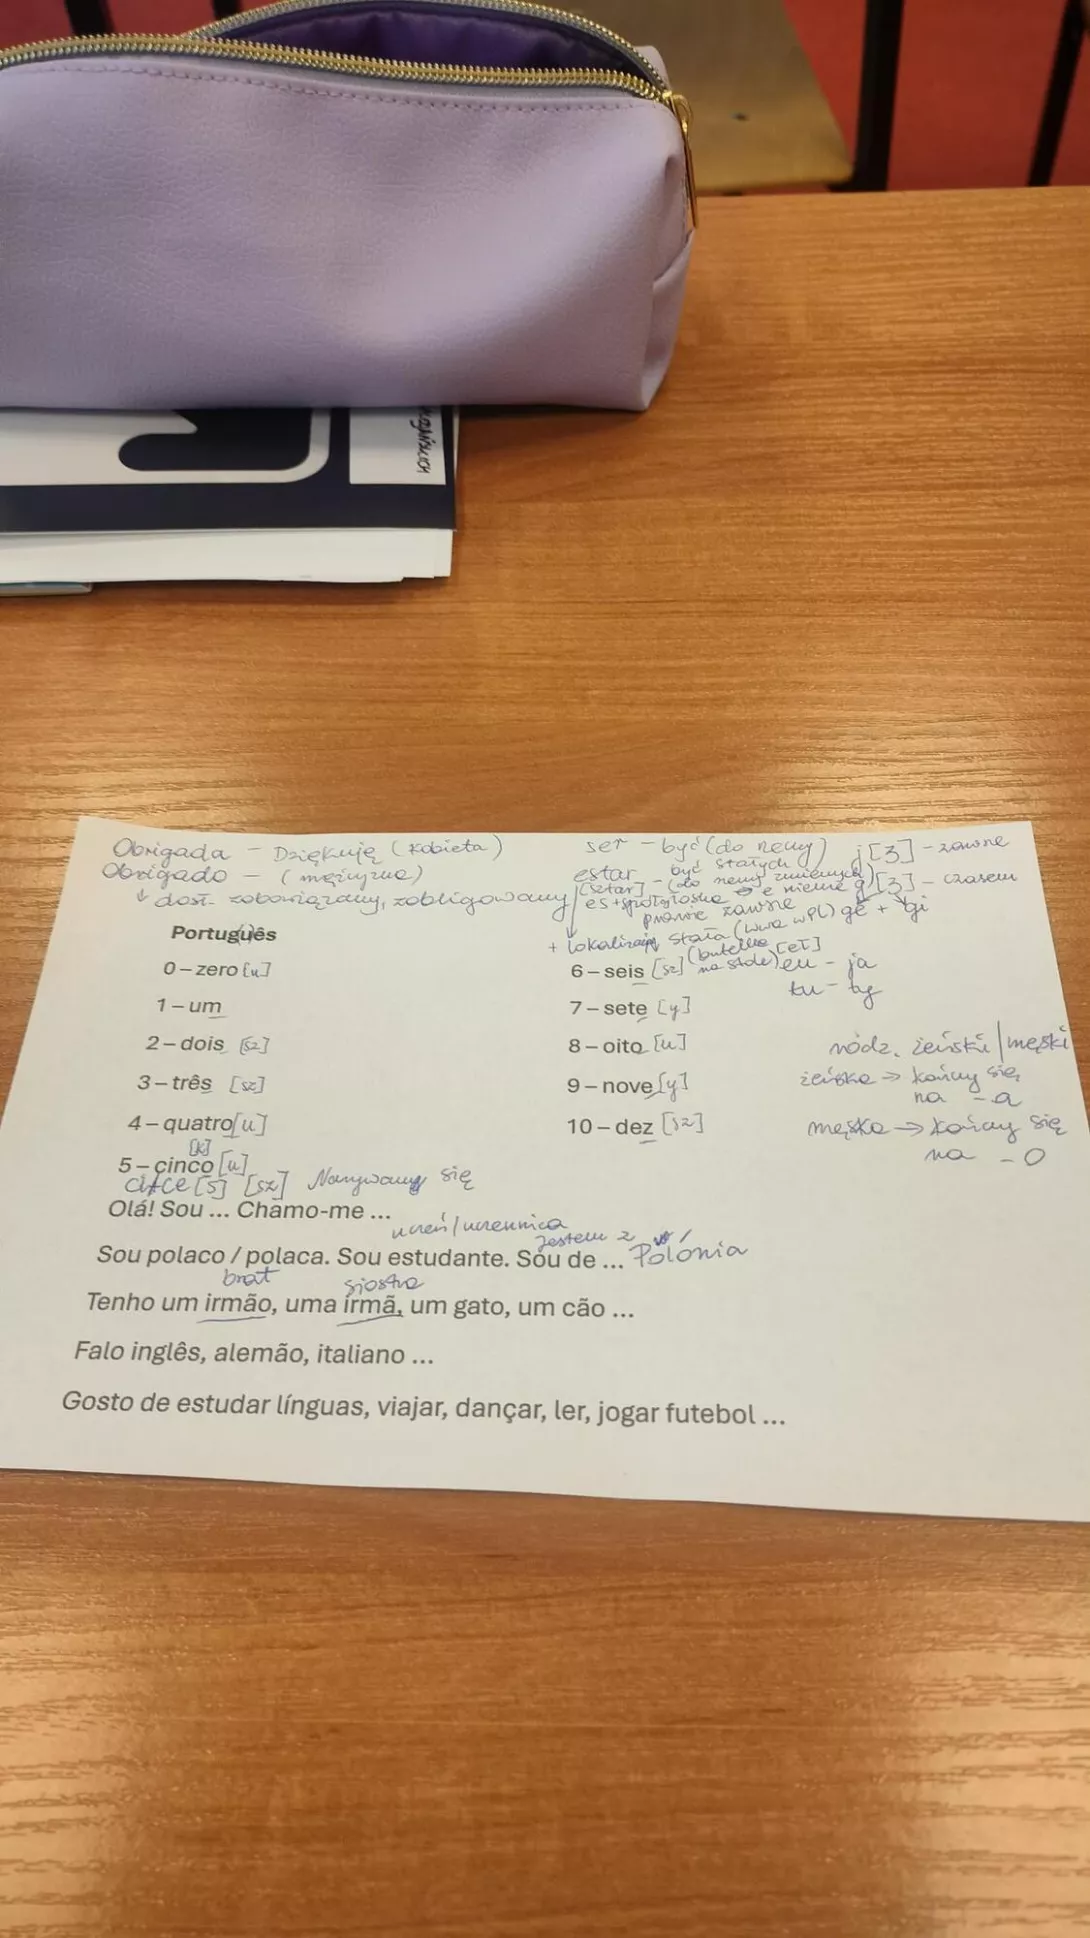 Obrigada - Dziękuję (kobieta)
Obrigado - (mężczyzna)
↓ dosł. zobowiązany, zobligowany
ser - być (do rzeczy stałych)
estar - być (do rzeczy zmiennych)
[sztar]
es + spółgłoska → e nieme
prawie zawsze
+ lokalizacja stała (Wwa w PL)
(butelka na stole)
j [ʒ] - zawsze
g [ʒ] - czasem
ge + gi
[eɪ]
eu - ja
tu - ty
Português
0 – zero [u]
1 – um
2 – dois [sz]
3 – três [sz]
4 – quatro [u]
[k]
5 – cinco [u]
6 – seis [sz]
7 – sete [y]
8 – oito [u]
9 – nove [y]
10 – dez [sz]
rodz. żeński / męski
żeńska → kończy się
na -a
męska → kończy się
na -o
[s] [sz] Nazywam się
Olá! Sou ... Chamo-me ...
uczeń/uczennica
Jestem z
Sou polaco / polaca. Sou estudante. Sou de ... Polónia
brat siostra
Tenho um irmão, uma irmã, um gato, um cão ...
Falo inglês, alemão, italiano ...
Gosto de estudar línguas, viajar, dançar, ler, jogar futebol ...